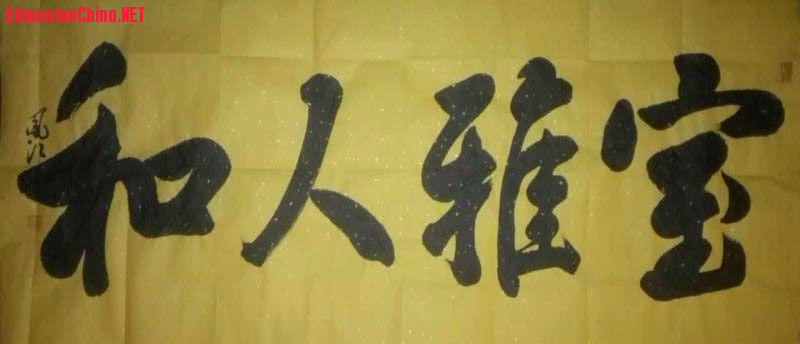 EdmontonChina.NET
室雅人和